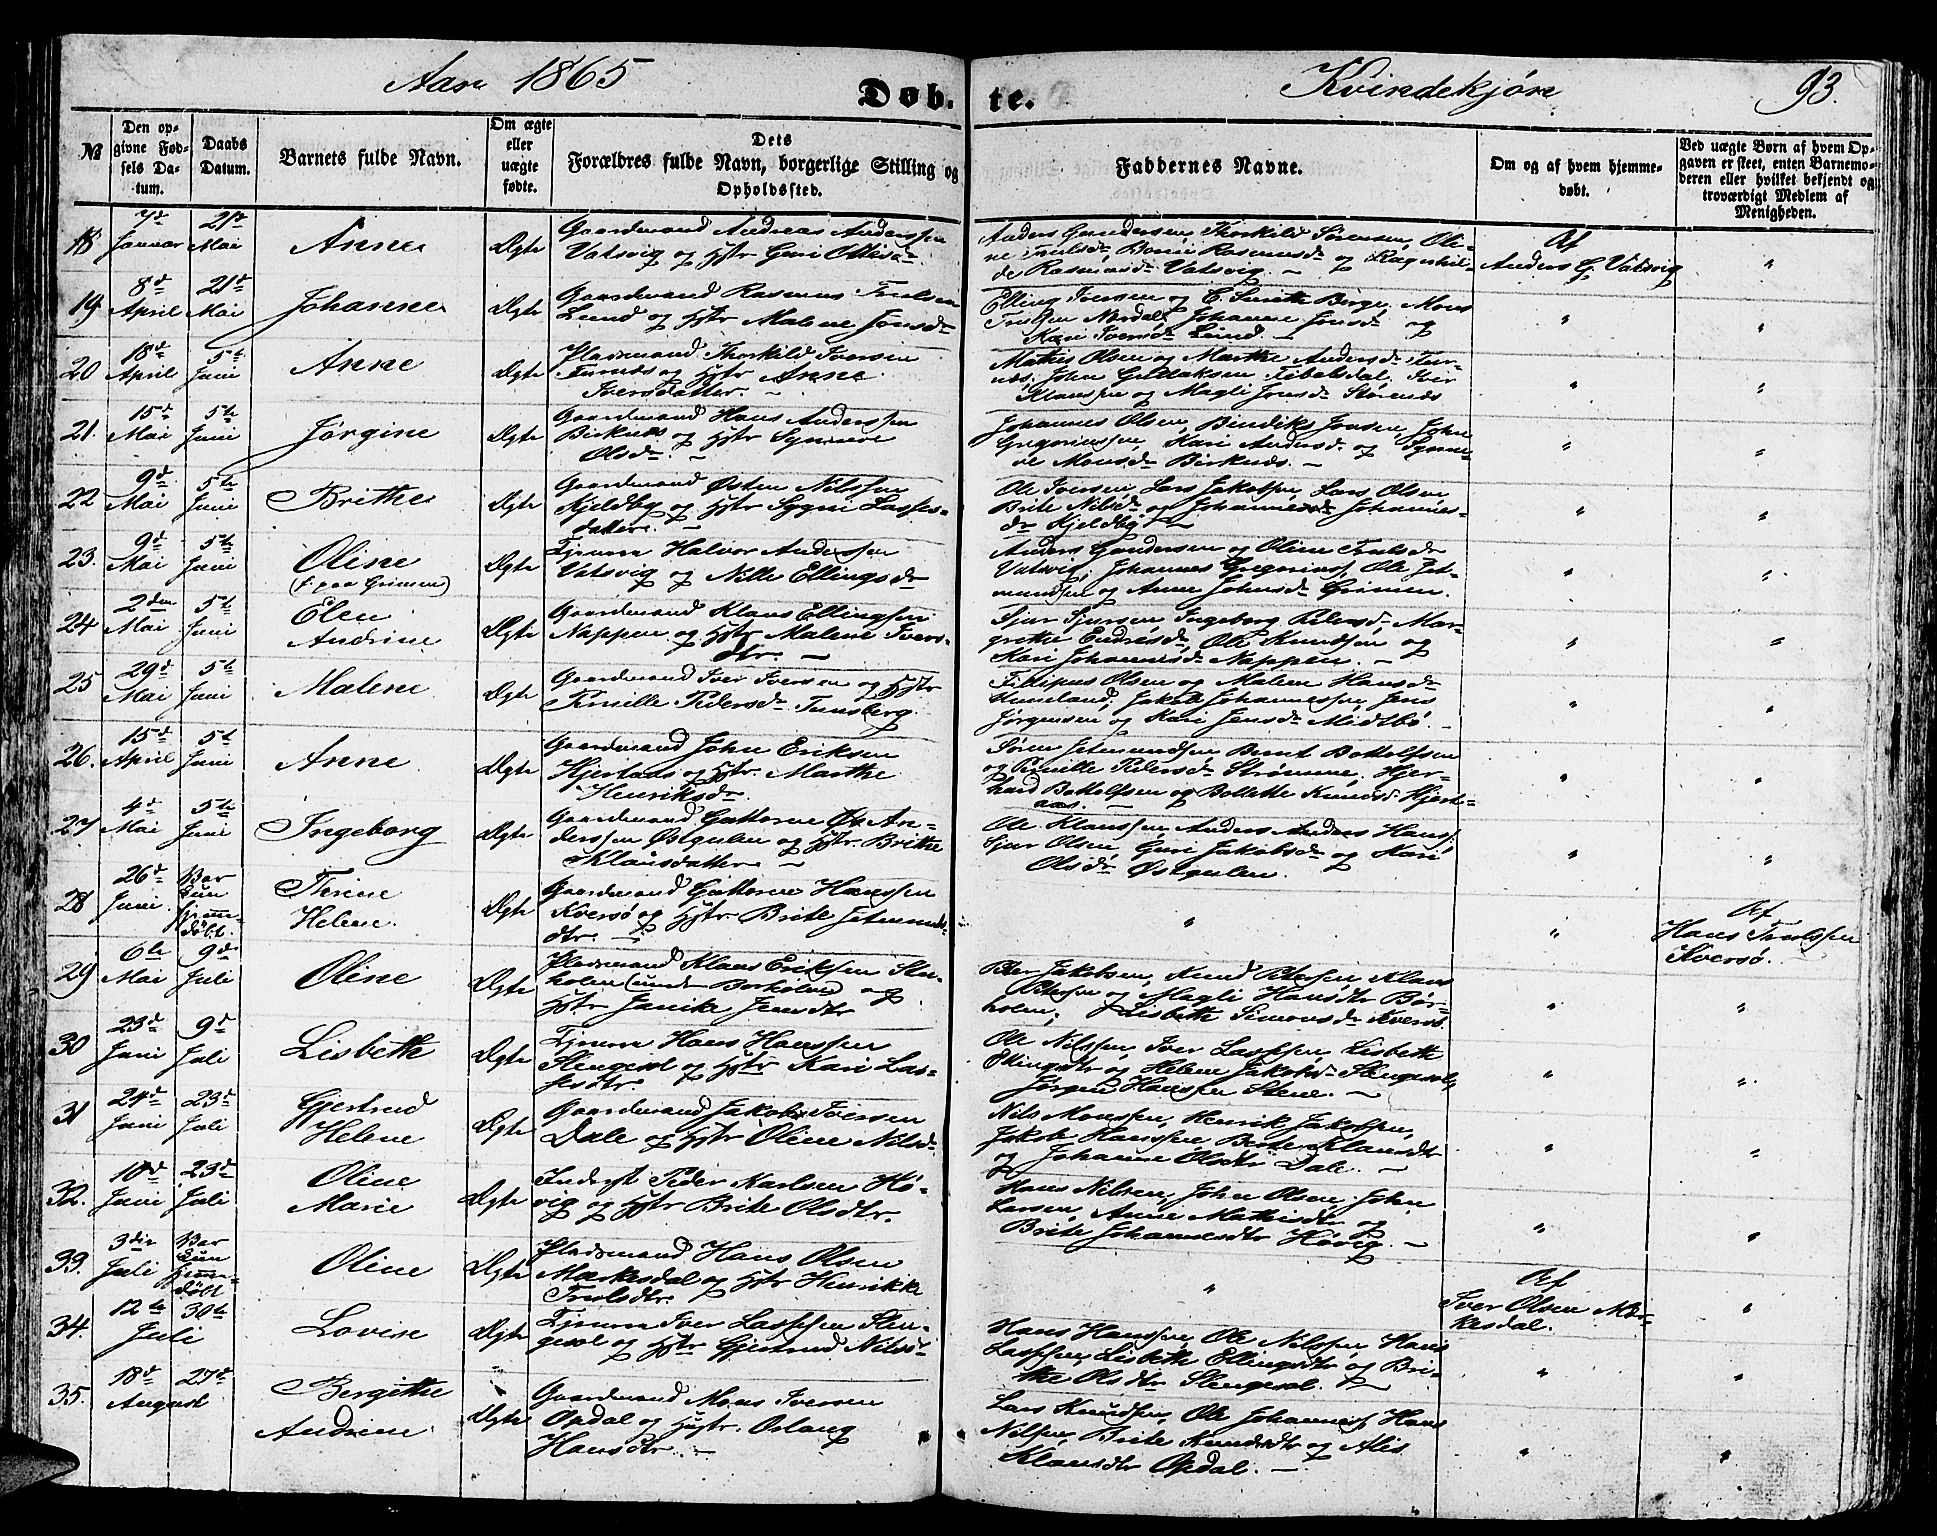 Aar 1865 Døb- te. Kvindekjøn 93.
№
Den opgivne Fødsels Datum.
Daabs Datum.
Barnets fulde Navn.
Om ægte eller uægte fødte.
Dets
Forældres fulde Navn, borgerlige Stilling og
Opholdssted.
Faddernes Navne.
Om og af hvem hjemmedøbt.
Ved uægte Børn af hvem Opgaven er skeet, enten Barnemoderen eller hvilket bekjendt og troværdigt Medlem af Menigheden.
18 7d Januar 21d Mai Anne Ægte
Gaardmand Andreas Anderssen
Vatsvig og Hstr Guri Ottesdr
Anders Gundersen, Thorkild Sørensen, Oline Trulsd. Rasmusd og Ragnhilde Rasmusdr Vatsvig. –
Af
Anders G. Vatsvig
19 8d April 21d Mai Johanne Ægte
Gaardmand Rasmus Trulsen
Lund og Hstr Malene Jonsdr
Elling Iversen og E. Smith Birge, Mons
Trulsen Nordal, Johanne Jonsdr og
Kari Iversdr Lund. –
20 18d April 5te Juni Anne Ægte
Pladsmand Thorkild Iversen
Furnæs og Hstr Anne
Iversdatter. –
Mathis Olsen og Marthe Andersdr Furnæs, John Tebelsdal, Iver
Klaussen og Magli Jonsdr Størenæs
21. 15d Mai 5te Juni Jørgine Ægte
Gaardmand Hans Anderssen
Birknæs og Hstr Synneve
Olsdr. –
Johannes Olsen, Bendiks Jonsen, John
Gregoriussen, Kari Andersdr og Synneve Monsdr Birknæs. –
22 9d Mai 5te Juni Brithe Ægte
Gaardmand Østen Nilssen
Kjeldby og Hstr Sygni Lassesdatter. –
Ole Iversen, Lars Jakobsen, Lars Olsen,
Brite Nilsdr og Johannesdr Johannesdr Kjeldby –
23. 9d Mai 5te Juni Oline (f. paa Grimen) Ægte
Tjenm Halvor Anderssen
Vatsvig og Nille Ellingsdr
Anders Gundersen og Oline Trulsdr
Vatsvig, Johannes Gregoriuss, Ole Jetmundsen og Anne Johnsdr Grimen.
24 2den Mai 5te Juni Elen Andrine Ægte
Gaardmand Klaus Ellingsen
Nappen og Hstr Malene Iversdtr. –
Sjur Sjursen, Ingeborg Petersd. Margrethe Endresdr, Ole Knudsøn og
Kari Johannesdr Nappen. –
25 29d Mai 5te Juni Malene Ægte
Gaardmand Iver Iversen og Hstr
Pernille Pedersdr Tunsberg
Filipus Olsen og Malene Hansdr
Huneland, Jakob Johannessen, Jens
Jørgensen og Kari Jensdr Midtbø. –
26. 15d April 5te Juni Anne Ægte
Gaardmand John Eriksen
Hjertaas og Hstr. Marthe
Henriksdr.
Søren Jetmundsen, Bernt Bottolfsen
og Pernille Pedersdr Strømme, Hjerhard Bottolfsen og Bolette Knudsd. Hjertaas. –
27 4d Mai 5te Juni Ingeborg Ægte
Gaardmand Guttorm Anderssen Østgulen og Hstr. Brithe
Klausdatter –
Ole Klaussen, Anders Anders Hanss.
Sjur Olsen, Guri Jakobsdr og Kari
Olsdr Østgulen.
28 26d Juni Bar kun hjemdøbt. Thrine Helene Ægte
Gaardmand Guttorm Hanssen
Kversø og Hstr. Brite Jetmundsdtr. –
Af
Hans Trulssen
Kversø.
29 6te Mai 9d Juli Oline Ægte
Pladsmand Klaus Eriksen Storholen (under Borholen) og
Hstr Janike Jensdtr
Peer Jakobsen, Knud Petersen, Klaus
Petersen og Magli Hansdtr Børholen, Lisbeth Simonsdr Kversø.
30 23d Juni 9d Juli Lisbeth Ægte
Tjenm Hans Hanssen
Slengesol og Hstr Kari Lassesdtr.
Ole Nilssen, Iver Lassen, Lisbeth
Ellingsdtr og Helene Jakobsdr Slengesol,
Jørgen Hanssen Stene. –
31 24d Juni 23d Juli Gjertrud Helene Ægte
Gaardmand Jakob Iversen
Dale og Hstr Oline Nilsdr
Nils Monssen, Henrik Jakobsen,
Jakob Hanssen, Berte Klausdtr
og Johanne Olsdtr Dale. –
32. 10d Juni 23d Juli Oline Marie Ægte
Inderst Peder Karlsen Høvig og Hstr Brite Olsdtr.
Hans Nilsen, John Olsen, John
Larsen, Anne Mathisdtr og
Brite Johannesdtr Høvig. –
33. 3die Juli Bar kun hjemdøbt Oline Ægte
Pladsmand Hans Olsen
Markesdal og Hstr Henrikke
Trulsdtr.
Af
Iver Olsen Markesdal.
34. 12te Juli 30te Lovise Ægte
Tjenm Iver Lassen Slengesol og Hstr Gjertrud Nilsd
Hans Hanssen, Ole Nilssen, Hans
Lassen, Lisbeth Ellingsdtr og Brithe Olsdtr Slengesol. –
35. 18d August 27d Bergithe Andrine Ægte
Gaardmand Mons Iversen
Opdal og Hustr. Oslaug
Hansdtr. –
Lars Knudsen, Ole Johanness, Hans
Nilsen, Brite Knudsdtr og Alis
Klausdtr Opdal. –